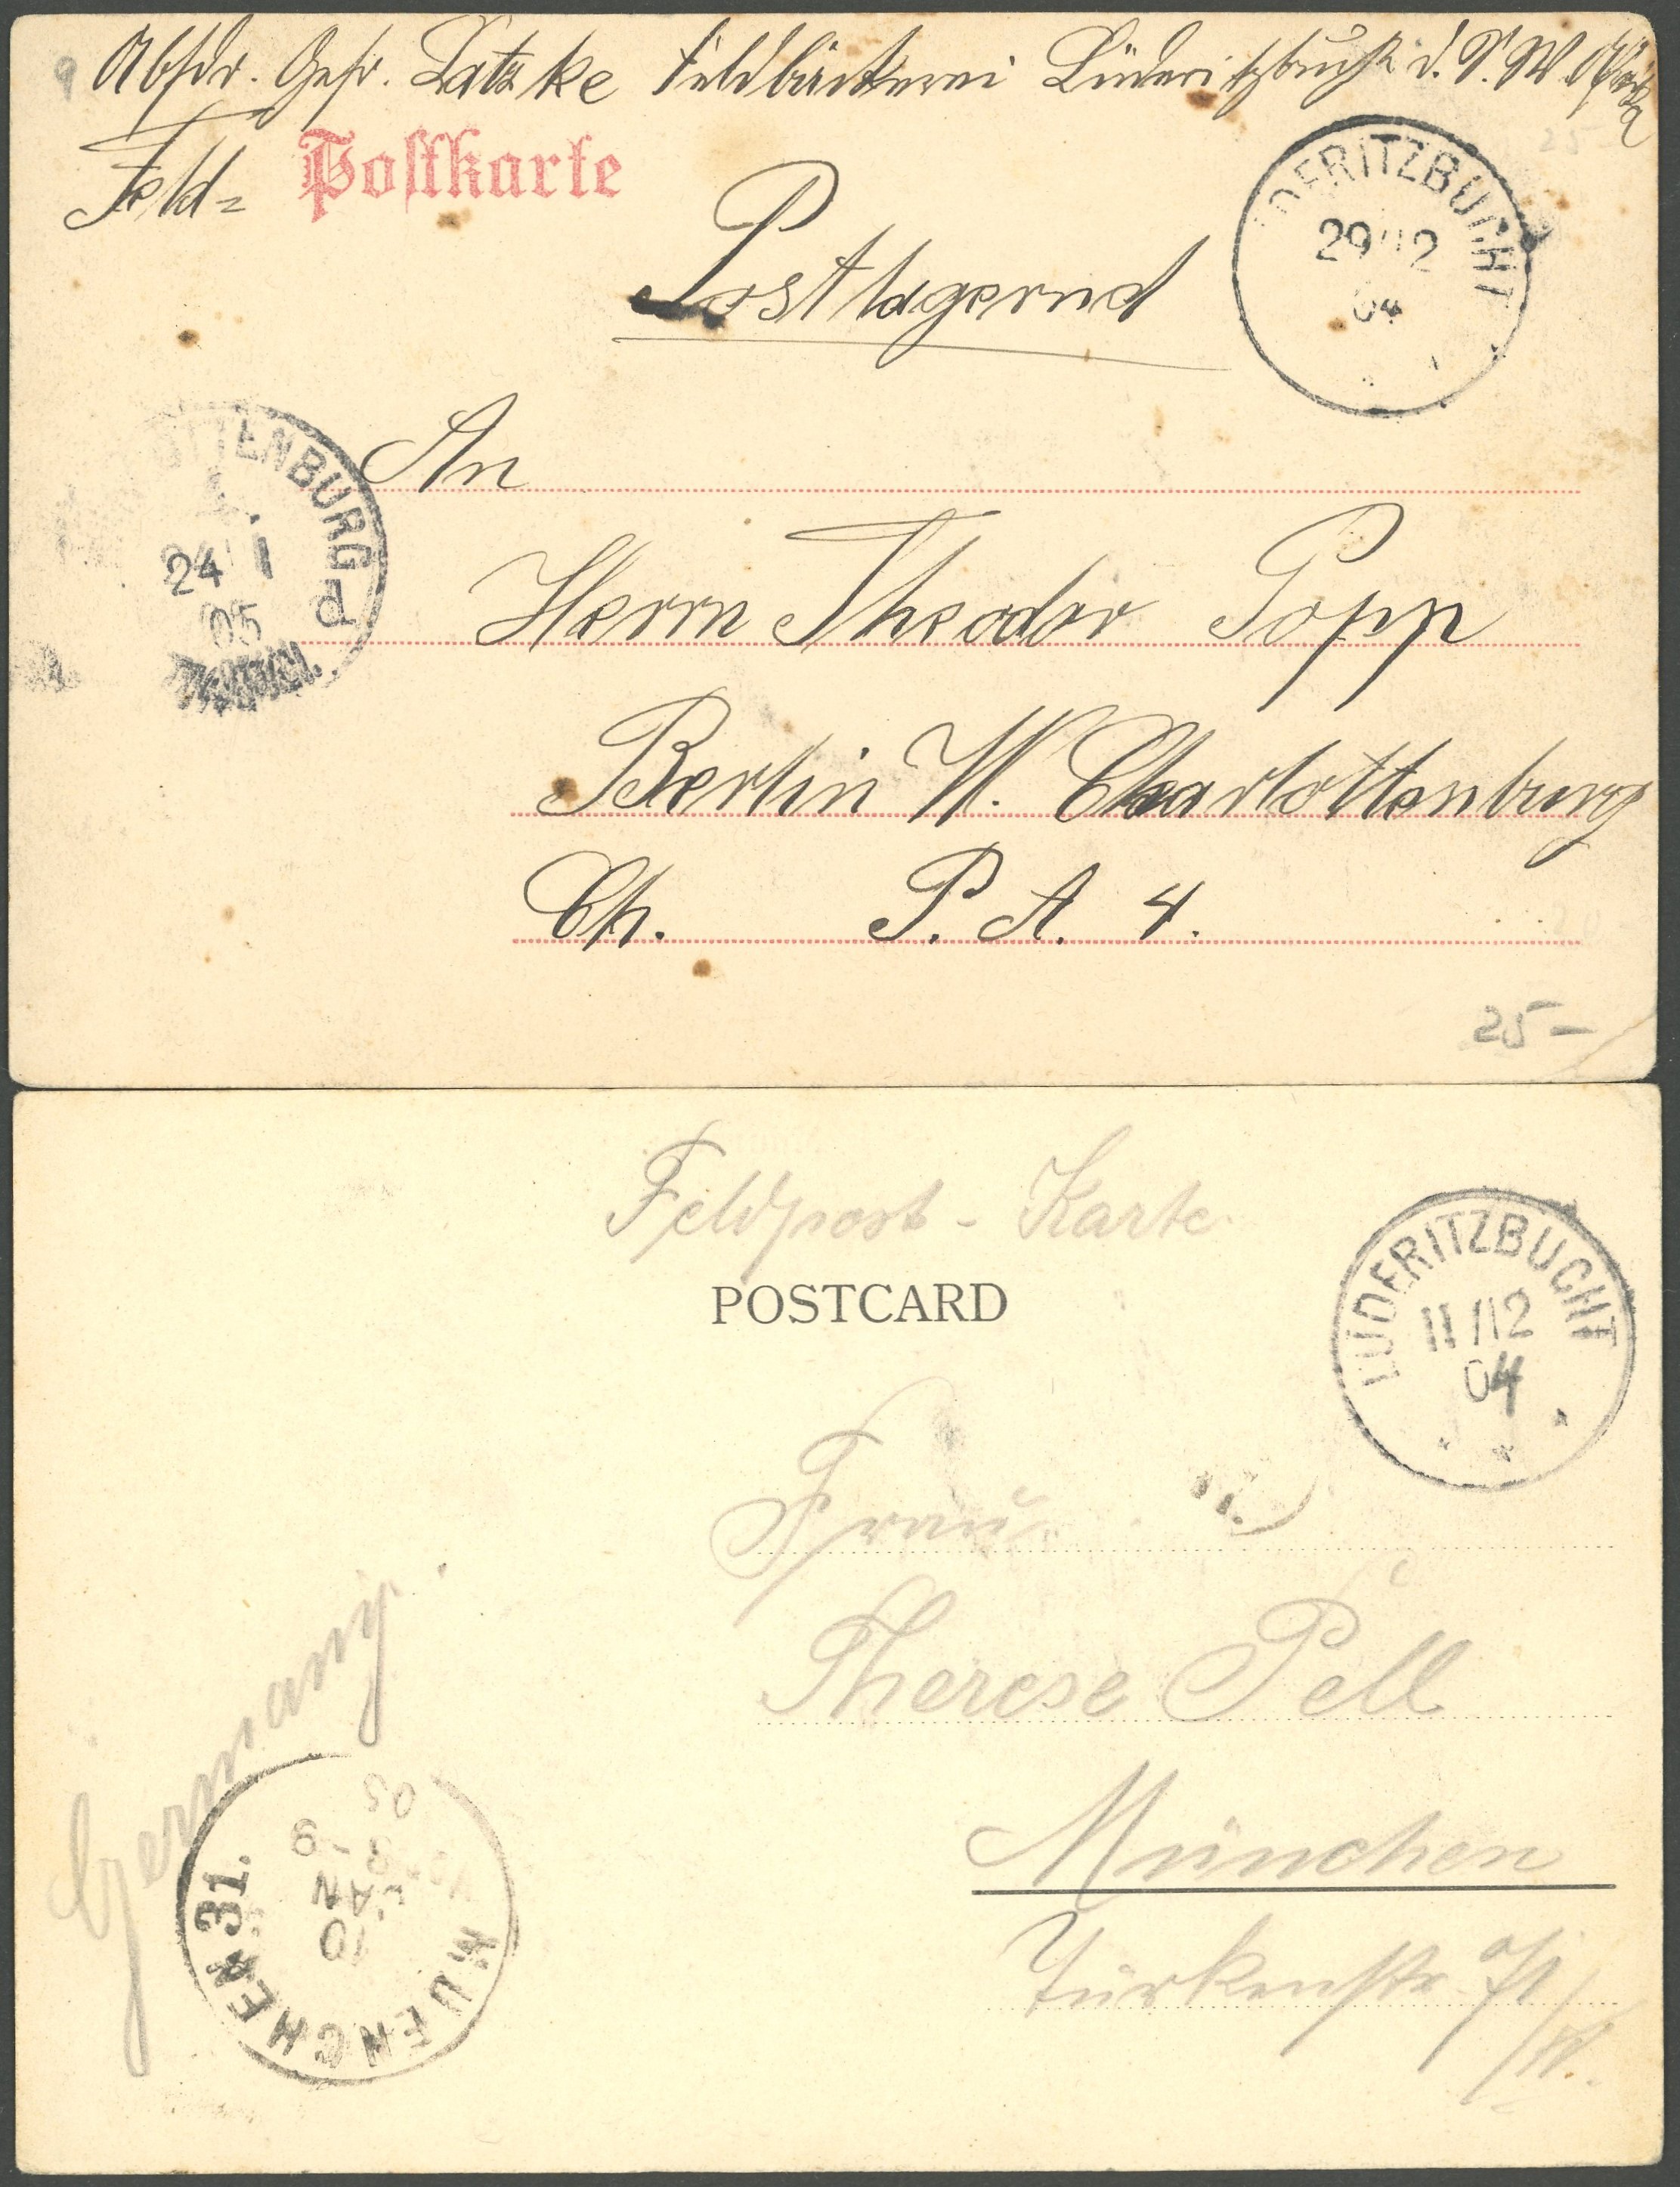 Absdr. Gefr. Latzke Feldbäckerei Lüderitzbucht d. S. W. Afrika
Feld= Postkarte
Postlagernd
DERITZBUCHT
29/12
04
An
TTENBURG
24 1
05
d
Herrn Theodor Popp
Berlin W. Charlottenburg
Ch. P. A. 4.
25-
Feldpost-Karte
POSTCARD
LÜDERITZBUCHT
11/12
04
Frau
Therese Pell
München
Türkenstr.
Germany.
MUENCHEN 31.
10
JAN
8-9
05